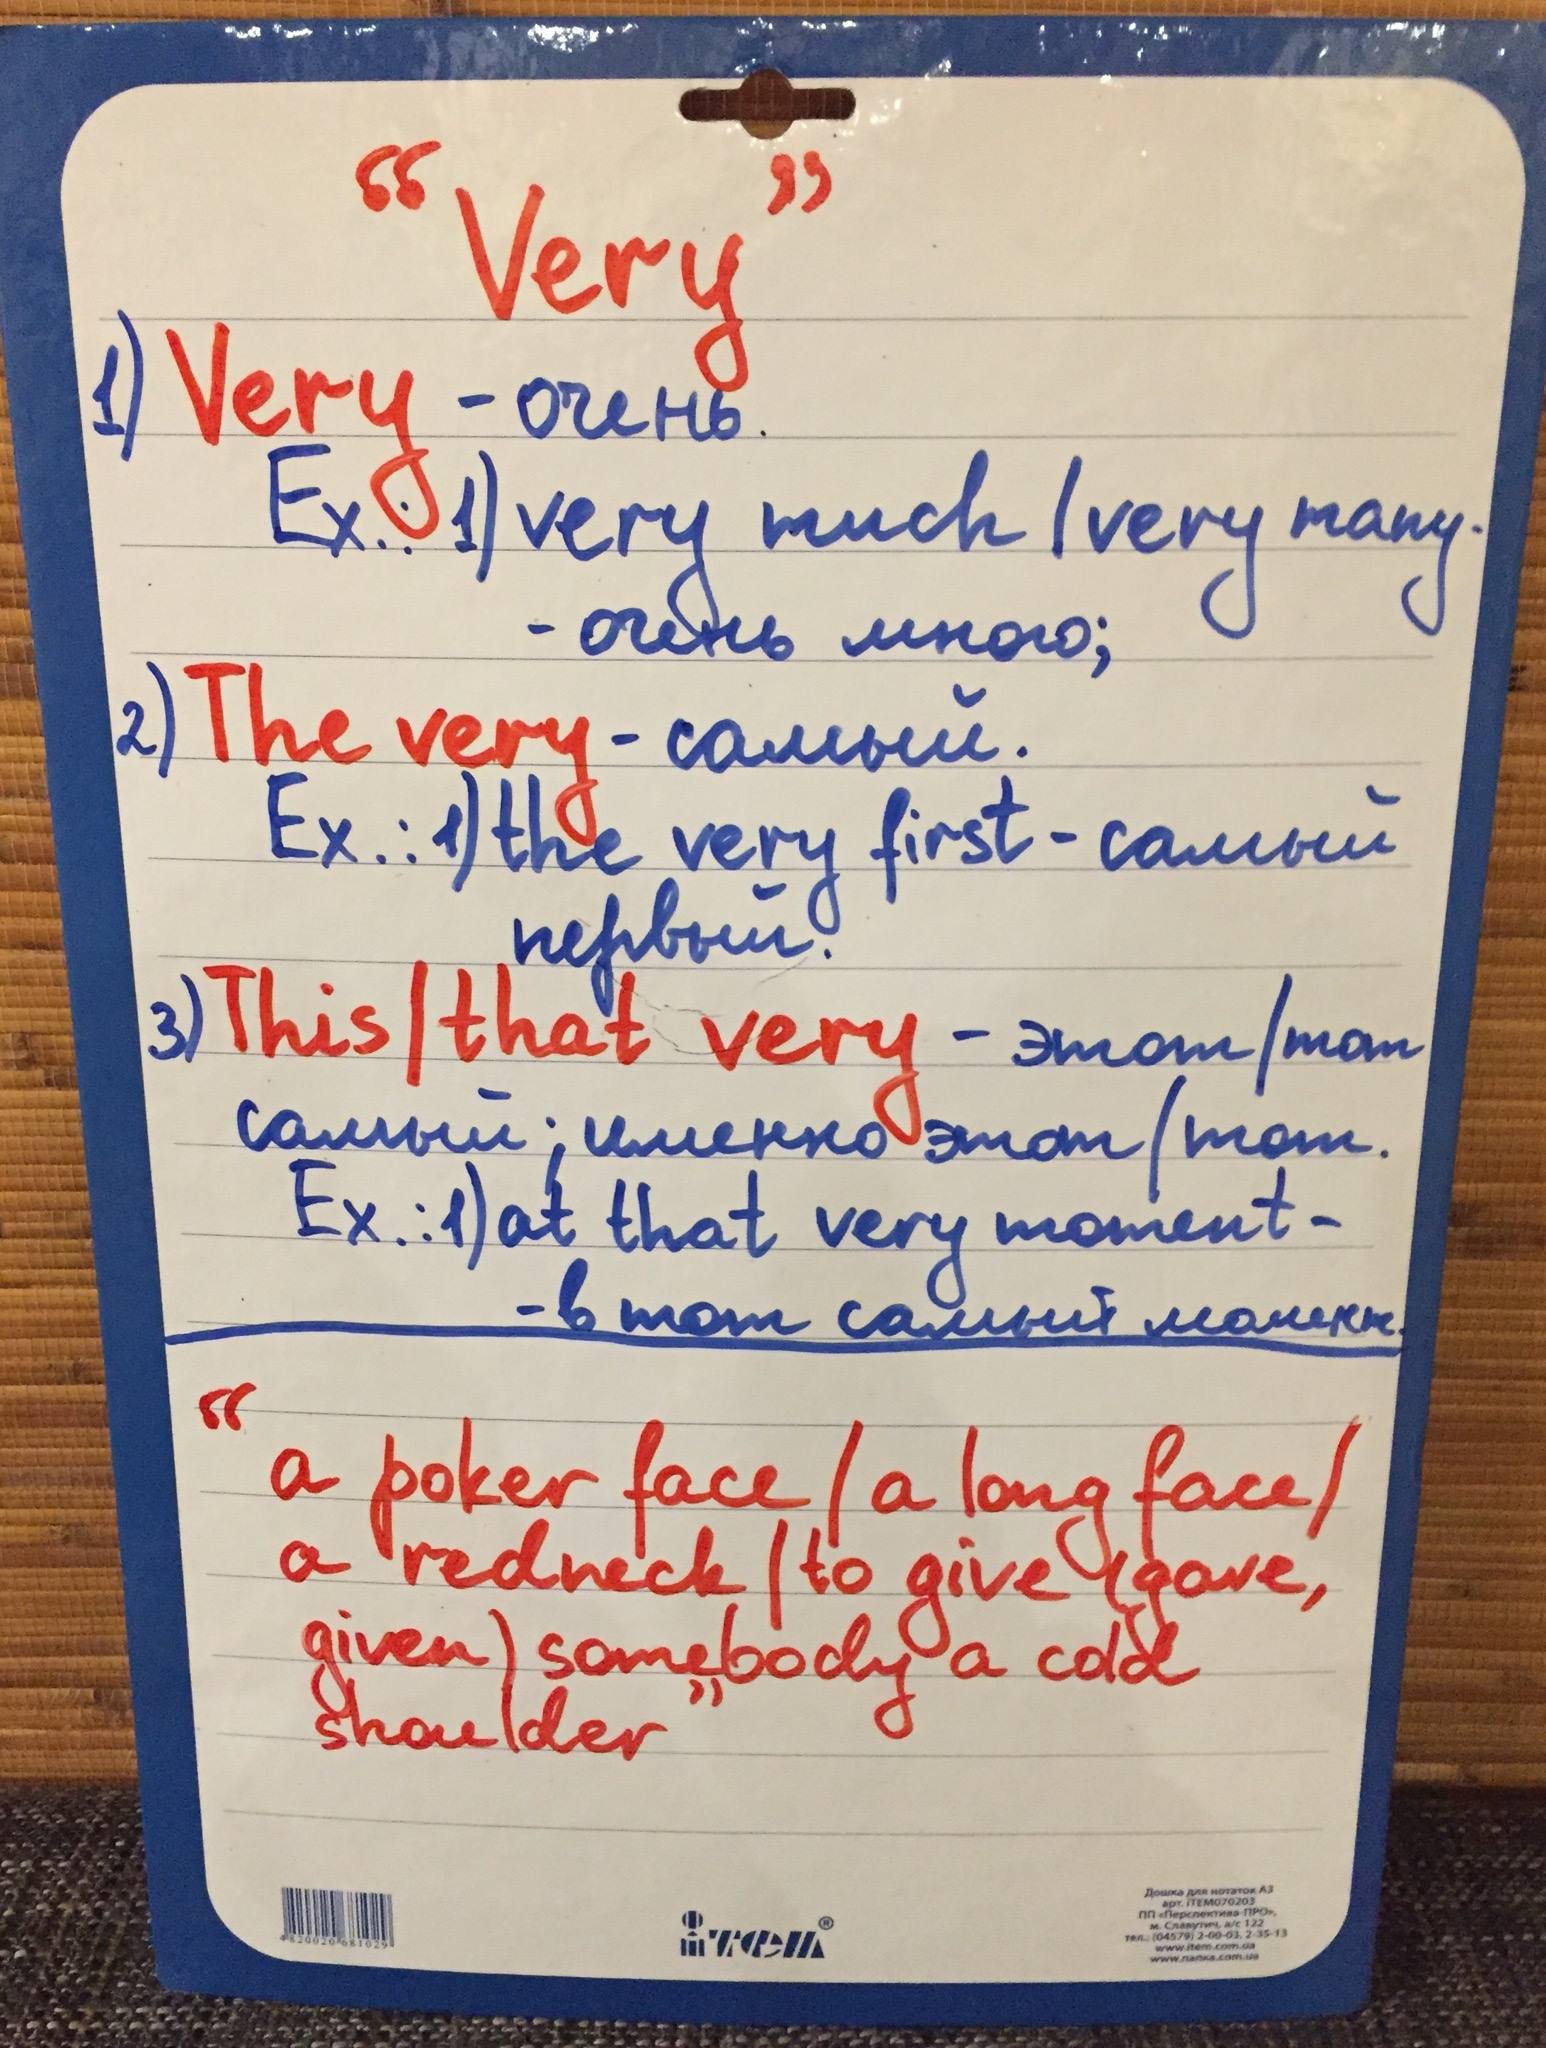 “Very”
1) Very - очень.
Ex.: 1) very much / very many -
- очень много;
2) The very - самый.
Ex.: 1) the very first - самый
первый.
3) This / that very - этот / тот
самый; именно этот / тот.
Ex.: 1) at that very moment -
- в тот самый момент.
“a poker face / a long face /
a redneck / to give (gave,
given) somebody a cold
shoulder”
4820020681029
iтем®
Дошка для нотаток А3
арт. iTEM070203
ПП «Перспектива-ПРО»,
м. Славутич, а/с 122
тел.: (04579) 2-00-03, 2-35-13
www.item.com.ua
www.папка.com.ua